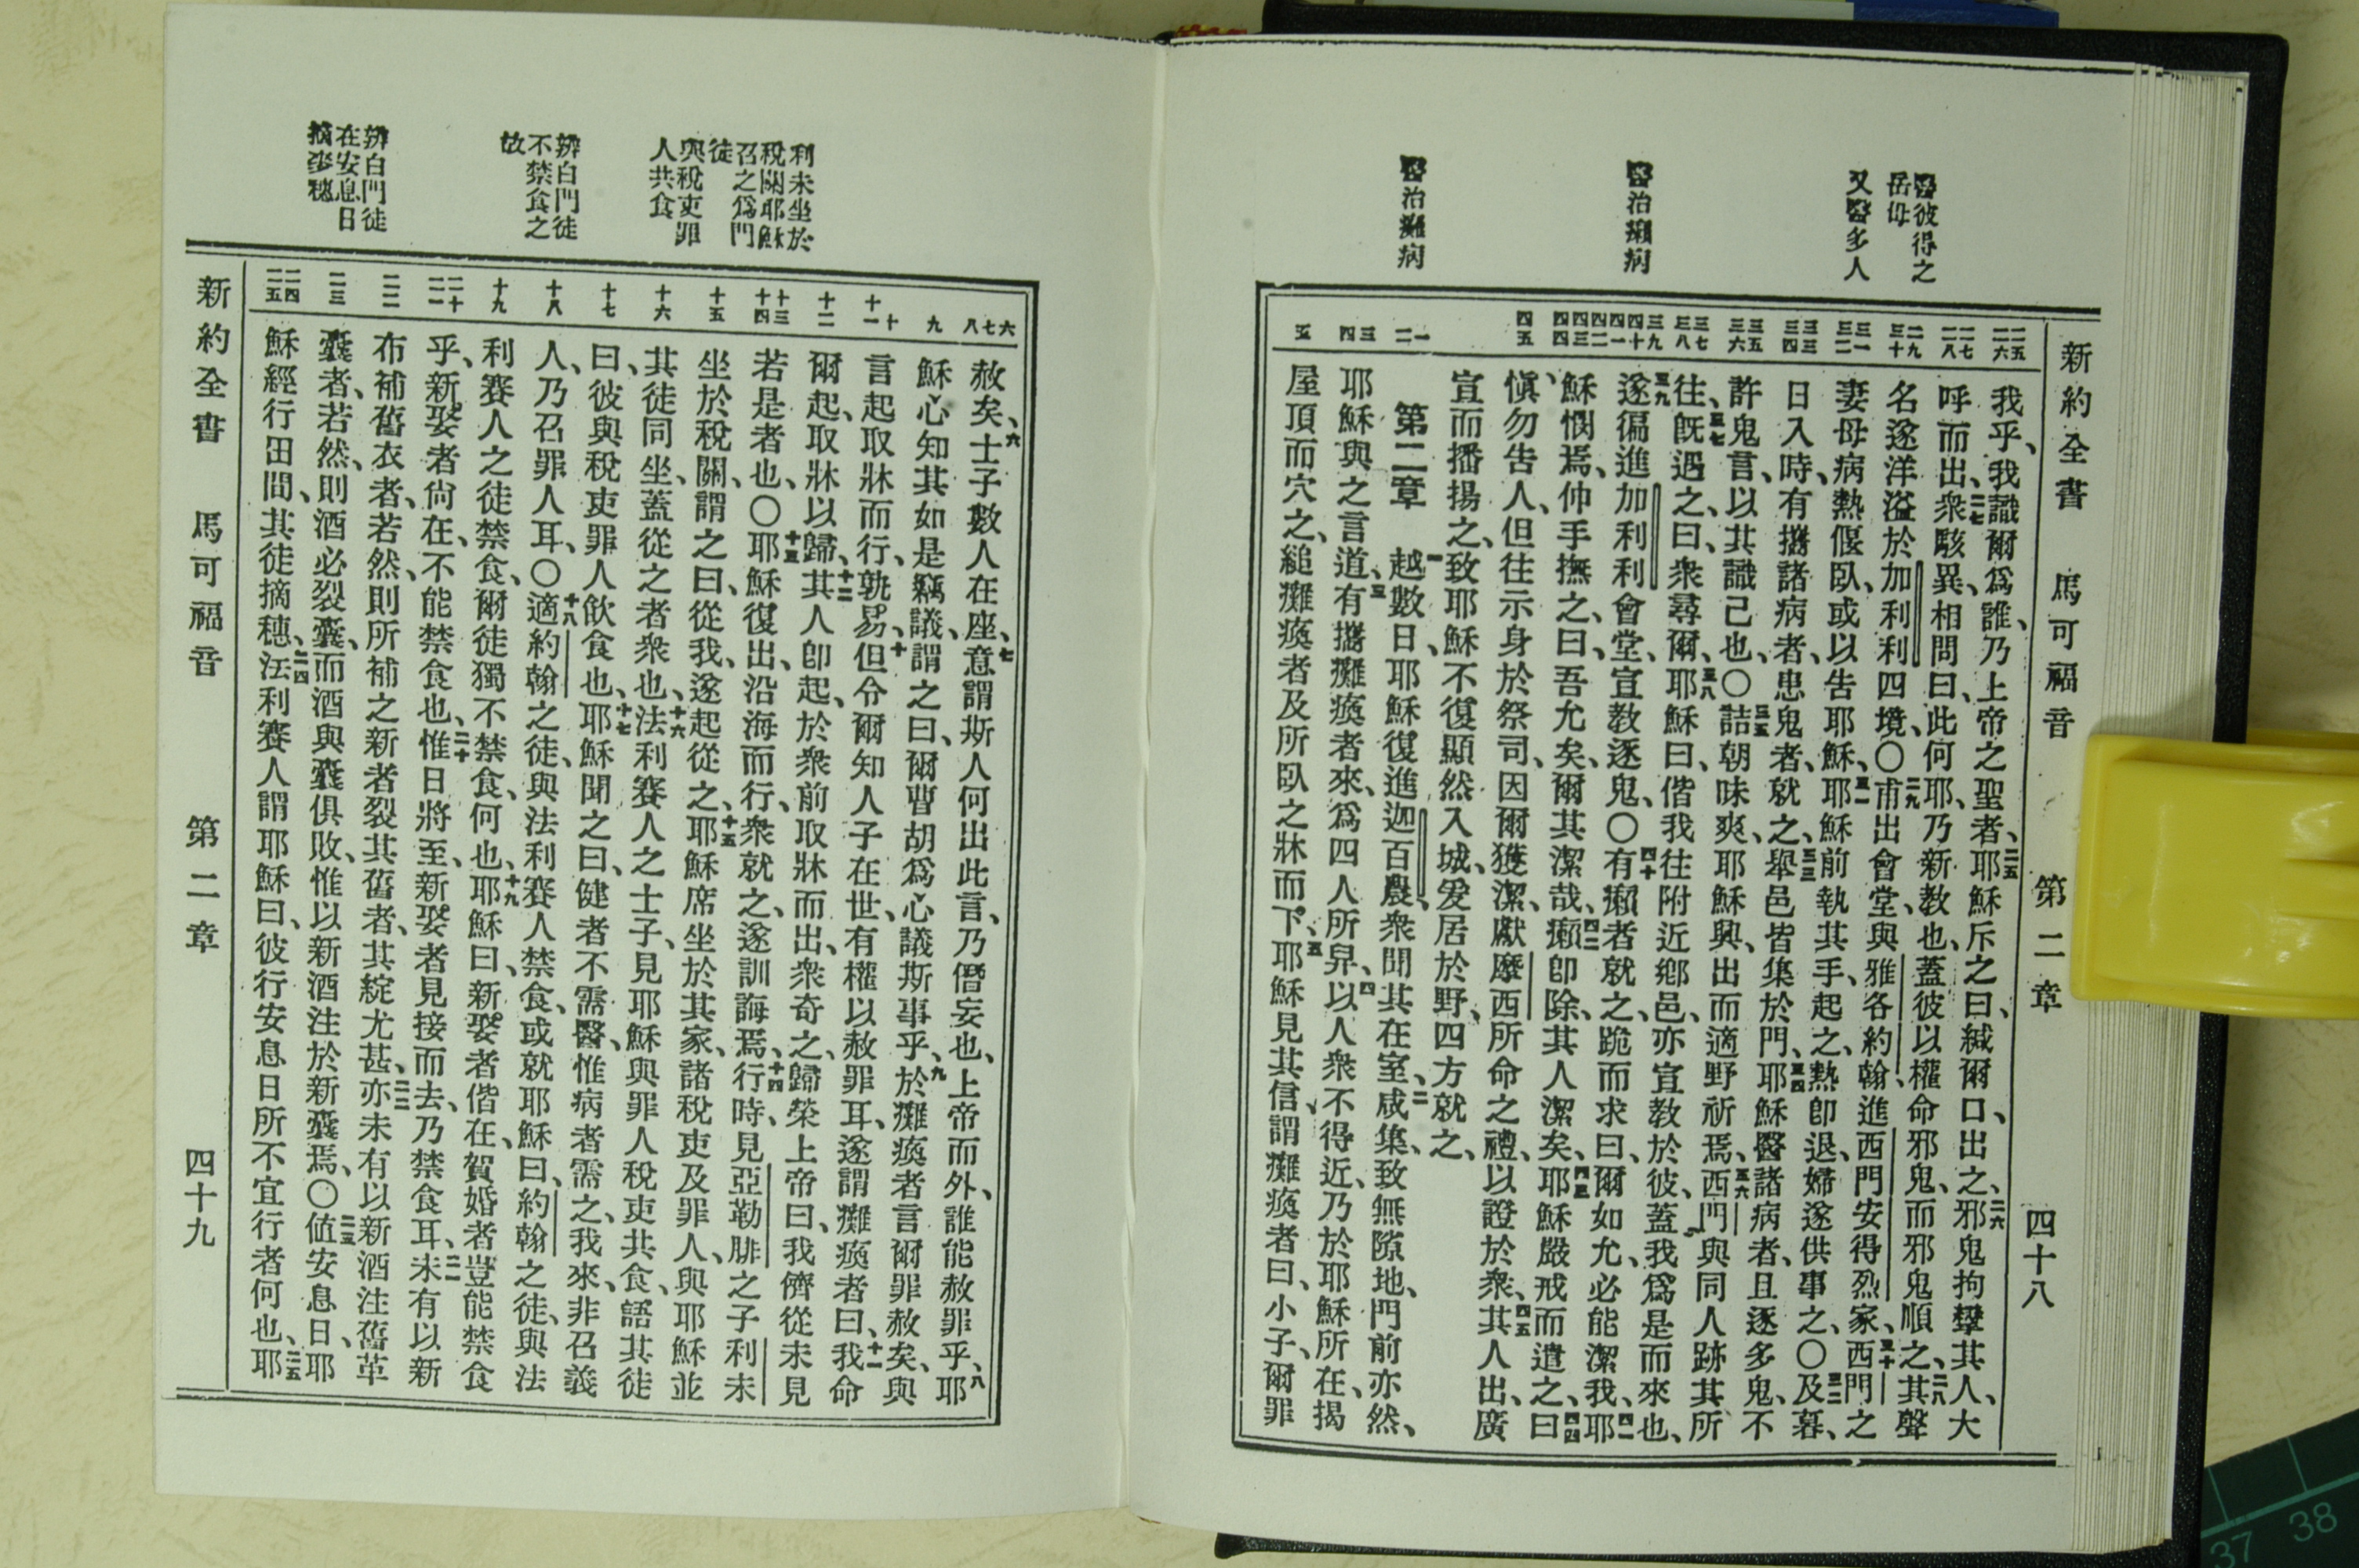 新約全書 馬可福音 第二章 四十八
醫彼得之
岳母
又醫多人
醫治癩病
醫治癱病
二五 二六
二七 二八
二九 三十
三一 三二
三三 三四
三五 三六
三七 三八
三九 四十 四一
四二 四三 四四
四五
一 二
三 四
五
我乎、我識爾爲誰、乃上帝之聖者、二五耶穌斥之曰、緘爾口、出之、二六邪鬼拘攣其人、大
呼而出、二七衆駭異、相問曰、此何耶、乃新教也、蓋彼以權命邪鬼、而邪鬼順之、二八其聲
名遂洋溢於加利利四境、〇二九甫出會堂、與雅各約翰、進西門安得烈家、三十西門之
妻母病熱偃臥、或以告耶穌、三一耶穌前執其手、起之、熱卽退、婦遂供事之、〇三二及暮、
日入時、有攜諸病者、患鬼者、就之、三三舉邑皆集於門、三四耶穌醫諸病者、且逐多鬼、不
許鬼言、以其識己也、〇三五詰朝昧爽、耶穌興、出而適野祈焉、三六西門與同人跡其所
往、三七旣遇之、曰、衆尋爾、三八耶穌曰、偕我往附近鄉邑、亦宣教於彼、蓋我爲是而來也、
三九遂徧進加利利會堂、宣教逐鬼、〇四十有癩者就之、跪而求曰、爾如允、必能潔我、四一耶
穌憫焉、伸手撫之、曰、吾允矣、爾其潔哉、四二癩卽除、其人潔矣、四三耶穌嚴戒而遣之、四四曰
愼勿告人、但往示身於祭司、因爾獲潔、獻摩西所命之禮、以證於衆、四五其人出、廣
宣而播揚之、致耶穌不復顯然入城、爰居於野、四方就之、
第二章 一越數日、耶穌復進迦百農、衆聞其在室、二咸集、致無隙地、門前亦然、
耶穌與之言道、三有攜癱瘓者來、爲四人所舁、四以人衆不得近、乃於耶穌所在、揭
屋頂而穴之、縋癱瘓者及所臥之牀而下、五耶穌見其信、謂癱瘓者曰、小子、爾罪
利未坐於
稅關耶穌
召之爲門
徒
與稅吏罪
人共食
辨白門徒
不禁食之
故
辨白門徒
在安息日
摘麥穗
六 七 八
九
十 十一
十二
十三 十四
十五
十六
十七
十八
十九
二十 二一
二二
二三
二四 二五
赦矣、六士子數人在座、七意謂斯人何出此言、乃僭妄也、上帝而外、誰能赦罪乎、八耶
穌心知其如是竊議、謂之曰、爾曹胡爲心議斯事乎、九於癱瘓者言爾罪赦矣、與
言起取牀而行、孰易、十但令爾知人子在世、有權以赦罪耳、遂謂癱瘓者曰、十一我命
爾起、取牀以歸、十二其人卽起、於衆前取牀而出、衆奇之、歸榮上帝曰、我儕從未見
若是者也、〇十三耶穌復出、沿海而行、衆就之、遂訓誨焉、十四行時、見亞勒腓之子利未
坐於稅關、謂之曰、從我、遂起從之、十五耶穌席坐於其家、諸稅吏及罪人、與耶穌並
其徒同坐、蓋從之者衆也、十六法利賽人之士子、見耶穌與罪人稅吏共食、語其徒
曰、彼與稅吏罪人飲食也、十七耶穌聞之曰、健者不需醫、惟病者需之、我來、非召義
人、乃召罪人耳、〇十八適約翰之徒、與法利賽人禁食、或就耶穌曰、約翰之徒、與法
利賽人之徒禁食、爾徒獨不禁食、何也、十九耶穌曰、新娶者偕在、賀婚者豈能禁食
乎、新娶者尙在、不能禁食也、二十惟日將至、新娶者見接而去、乃禁食耳、二一未有以新
布補舊衣者、若然、則所補之新者裂其舊者、其綻尤甚、二二亦未有以新酒注舊革
囊者、若然、則酒必裂囊、而酒與囊俱敗、惟以新酒注於新囊焉、〇二三値安息日、耶
穌經行田間、其徒摘穗、二四法利賽人謂耶穌曰、彼行安息日所不宜行者何也、二五耶
新約全書 馬可福音 第二章 四十九
37 38